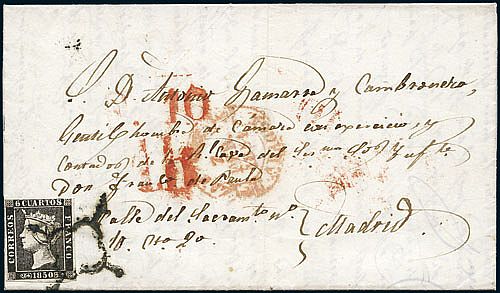 S. D. Antonio Gamarra y Cambronero,
Gentilhombre de Camara con exercicio, y
Contador de la Rl Casa del Ser mo Sor Ynfte
Don Franco de Paula
Calle del Sacramto no
18 cto 20
Madrid
10
CORREOS
6 CUARTOS
FRANCO
1850